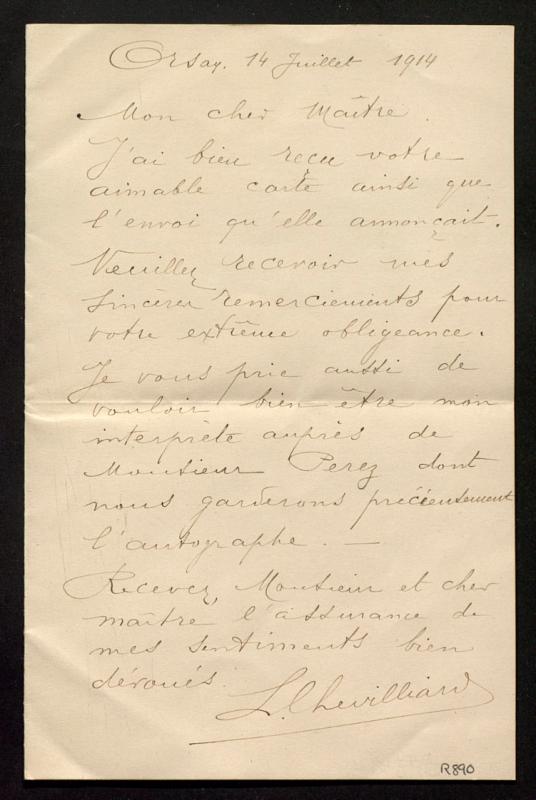 Orsay. 14 Juillet 1914
Mon cher Maître.
J'ai bien reçu votre
aimable carte ainsi que
l'envoi qu'elle annonçait.
Veuillez recevoir mes
sincères remerciements pour
votre extrême obligeance.
Je vous prie aussi de
vouloir bien être mon
interprète auprès de
Monsieur Perez dont
nous garderons précieusement
l'autographe. —
Recevez, Monsieur et cher
maître l'assurance de
mes sentiments bien
dévoués.
L. Chevilliard
R890